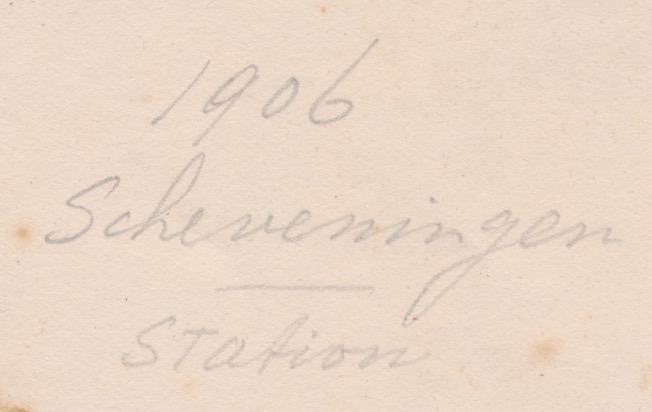 1906
Scheveningen
Station